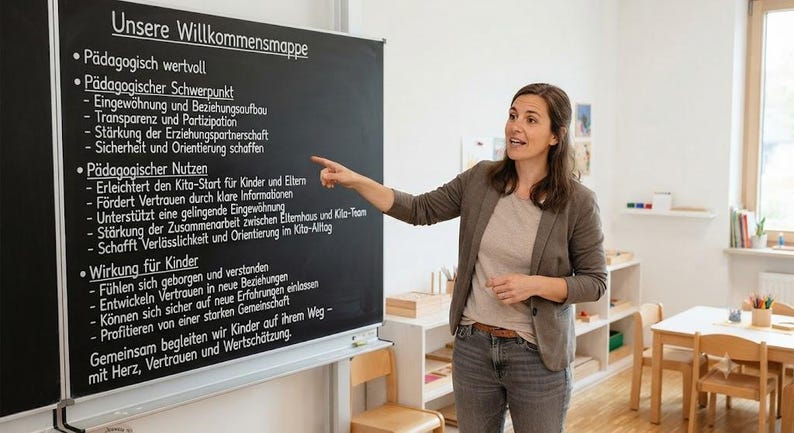 Unsere Willkommensmappe
• Pädagogisch wertvoll
• Pädagogischer Schwerpunkt
- Eingewöhnung und Beziehungsaufbau
- Transparenz und Partizipation
- Stärkung der Erziehungspartnerschaft
- Sicherheit und Orientierung schaffen
• Pädagogischer Nutzen
- Erleichtert den Kita-Start für Kinder und Eltern
- Fördert Vertrauen durch klare Informationen
- Unterstützt eine gelingende Eingewöhnung
- Stärkung der Zusammenarbeit zwischen Elternhaus und Kita-Team
- Schafft Verlässlichkeit und Orientierung im Kita-Alltag
• Wirkung für Kinder
- Fühlen sich geborgen und verstanden
- Entwickeln Vertrauen in neue Beziehungen
- Können sich sicher auf neue Erfahrungen einlassen
- Profitieren von einer starken Gemeinschaft
Gemeinsam begleiten wir Kinder auf ihrem Weg –
mit Herz, Vertrauen und Wertschätzung.